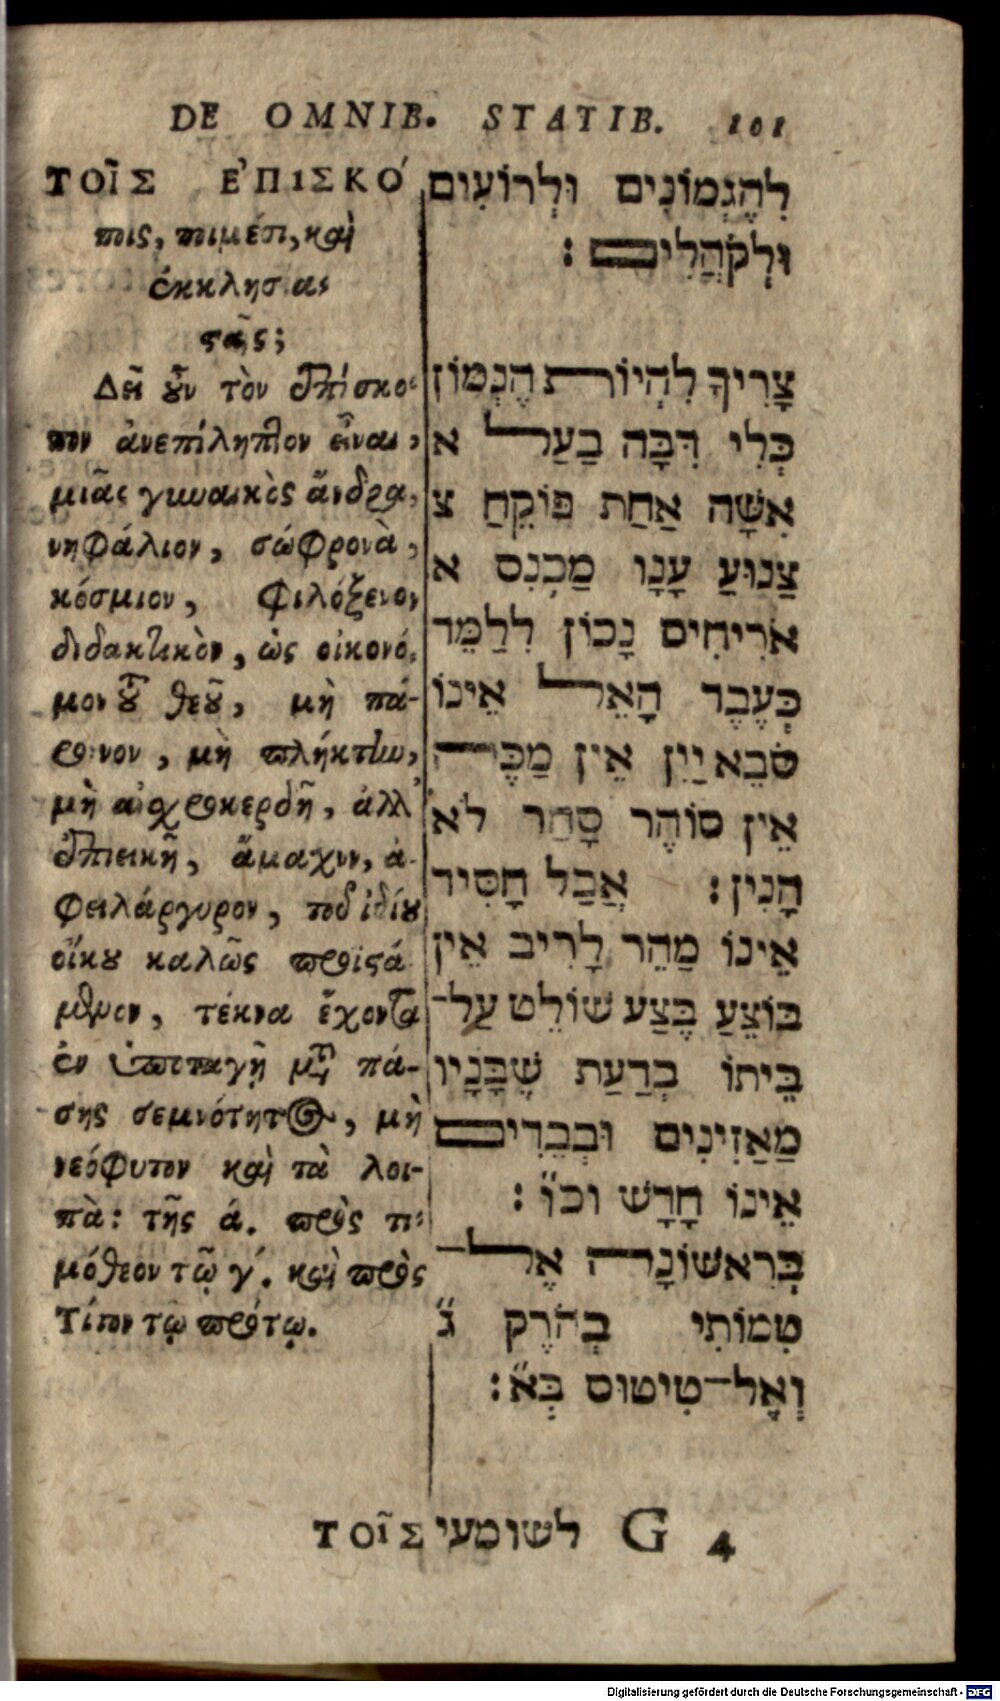 DE OMNIB. STATIB. 101
ΤΟῖΣ ἘΠΙΣΚΌ
ποις, ποιμέσι, καὶ
ἐκκλησιας
ταῖς;
Δεῖ οὖν τὸν ἐπίσκο-
πον ἀνεπίληπτον εἶναι,
μιᾶς γυναικὸς ἄνδρα,
νηφάλιον, σώφρονὰ,
κόσμιον, φιλόξενον
διδακτικὸν, ὡς οἰκονό-
μον τοῦ θεοῦ, μὴ πά-
ροινον, μὴ πλήκτην,
μὴ αἰσχροκερδῆ, ἀλλ'
ἐπιεικῆ, ἄμαχον, ἀ-
φιλάργυρον, τοῦ ἰδίου
οἴκου καλῶς προϊστά
μενον, τέκνα ἔχοντα
ἐν ὑποταγῇ μετὰ πά-
σης σεμνότητος, μὴ
νεόφυτον καὶ τὰ λοι-
πὰ: τῆς ά. πρὸς τι-
μόθεον τῷ γ΄. καὶ πρὸς
Τίτον τῷ πρότῳ.
לְהֶגְמוֹנִים וּלְרוֹעִים
וּלְקֹהֲלִים :
צָרִיךְ לִהְיוֹת הֶגְמוֹן
כְּלִי דִּבָּה בַעַל א
אִשָּׁה אַחַת פּוֹקֵחַ צ
צַנוּעַ עָנָו מַכְנִס א
אֹרִיחִים נָכוֹן לְלַמֵּד
כְּעֶבֶד הָאֵל אֵינוֹ
סֹבֵא יַיִן אֵין מַכֶּה
אֵין סוֹהֶר סָחַר לֹא
הָנִין : אֲבַל חָסִיד
אֵינוֹ מַהֵר לָרִיב אֵין
בּוֹצֵעַ בֶּצַע שׁוֹלֵט עַל־
בֵּיתוֹ בְדַעַת שֶׁבָּנָיו
מַאַזִינִים וּבְכֵבִדִים
אֵינוֹ חָדָשׁ וכו״ :
בְּרִאשׁוֹנָה אֶל־
טִמוֹתִי בְּפֶרֶק ג״
וְאֶל־טִיטוּס בְּא״ :
ΤΟῖΣ לשומעי G 4
Digitalisierung gefördert durch die Deutsche Forschungsgemeinschaft - DFG